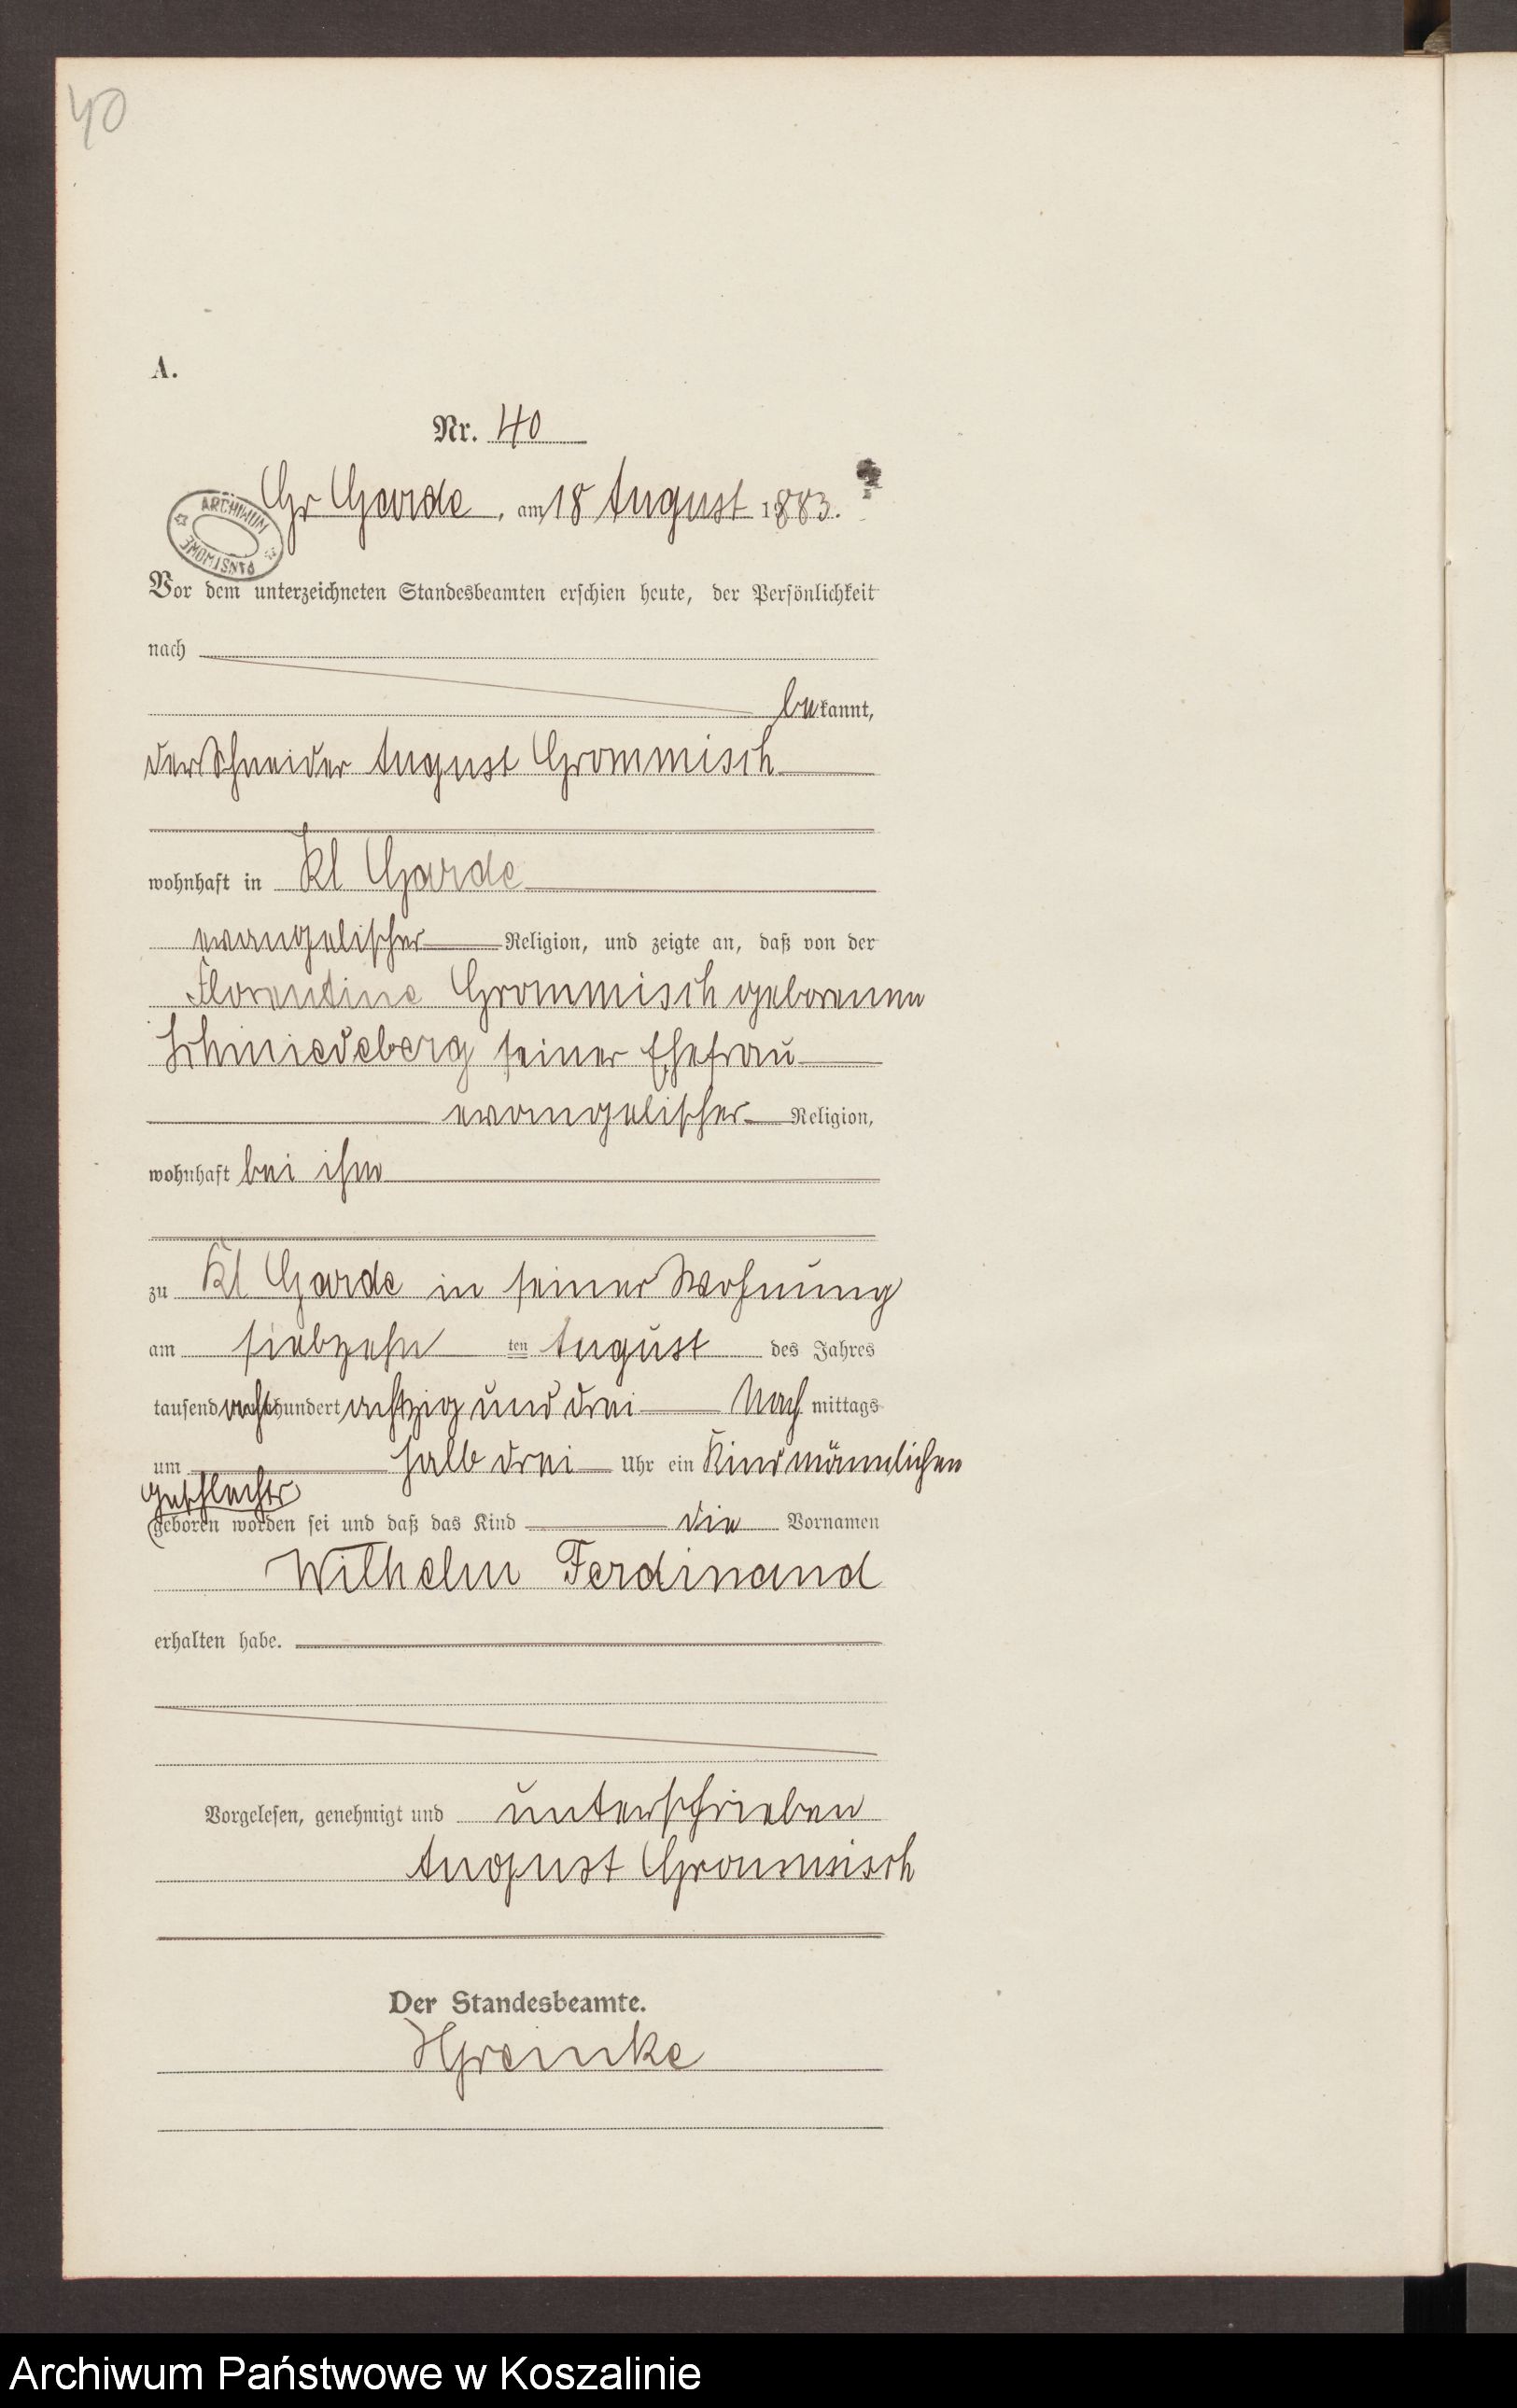 40
A.
Nr. 40
Gr Garde, am 18 August 1883.
ARCHIWUM PAŃSTWOWE
Vor dem unterzeichneten Standesbeamten erschien heute, der Persönlichkeit
nach
bekannt,
der Schneider August Grommisch
wohnhaft in Kl Garde
evangelischer Religion, und zeigte an, daß von der
Florentine Grommisch geborenen
Schmiedeberg seiner Ehefrau
evangelischer Religion,
wohnhaft bei ihm
zu Kl Garde in seiner Wohnung
am siebzehn ten August des Jahres
tausend acht hundert achtzig und drei Nach mittags
um halb drei Uhr ein Kind männlichen
Geschlechts
geboren worden sei und daß das Kind die Vornamen
Wilhelm Ferdinand
erhalten habe.
Vorgelesen, genehmigt und unterschrieben
August Grommisch
Der Standesbeamte.
Archiwum Państwowe w Koszalinie